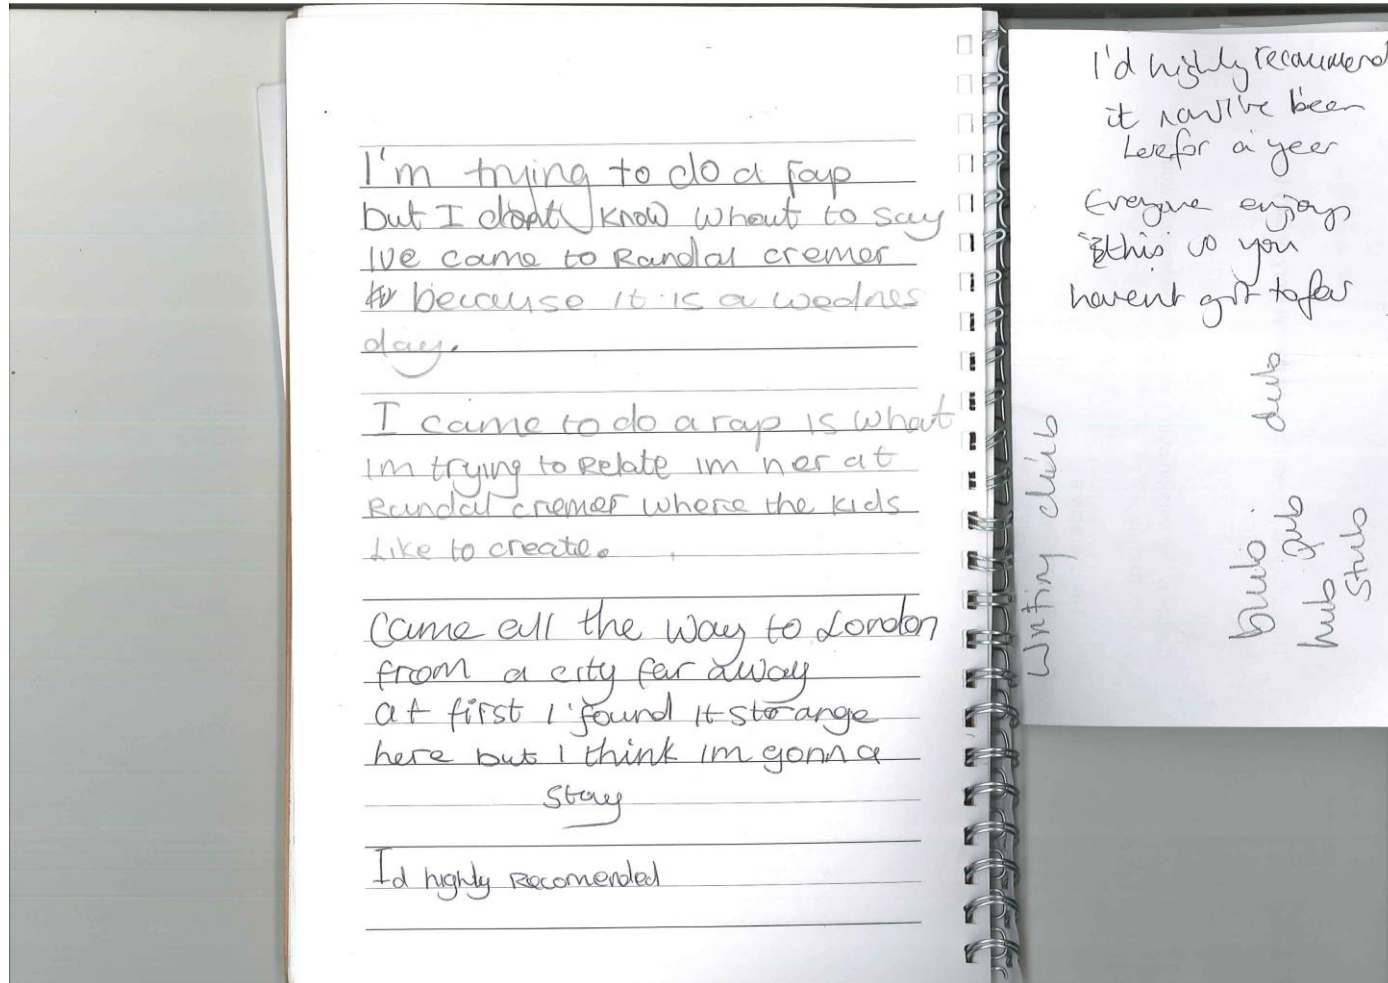 I'm trying to do a rap
but I dont know whout to say
Ive came to Randal cremer
because it is a wednes
day.
I came to do a rap is whout
im trying to Relate im her at
Randal cremer where the kids
Like to create.
Came all the way to London
from a city far away
at first I found it strange
here but I think im gonna
stay
Id highly Recomended
I'd highly recommend
it now I've been
here for a year
Everyone enjoys
this so you
havent got to fear
Writing club
blub
pub
dub
hub
stub